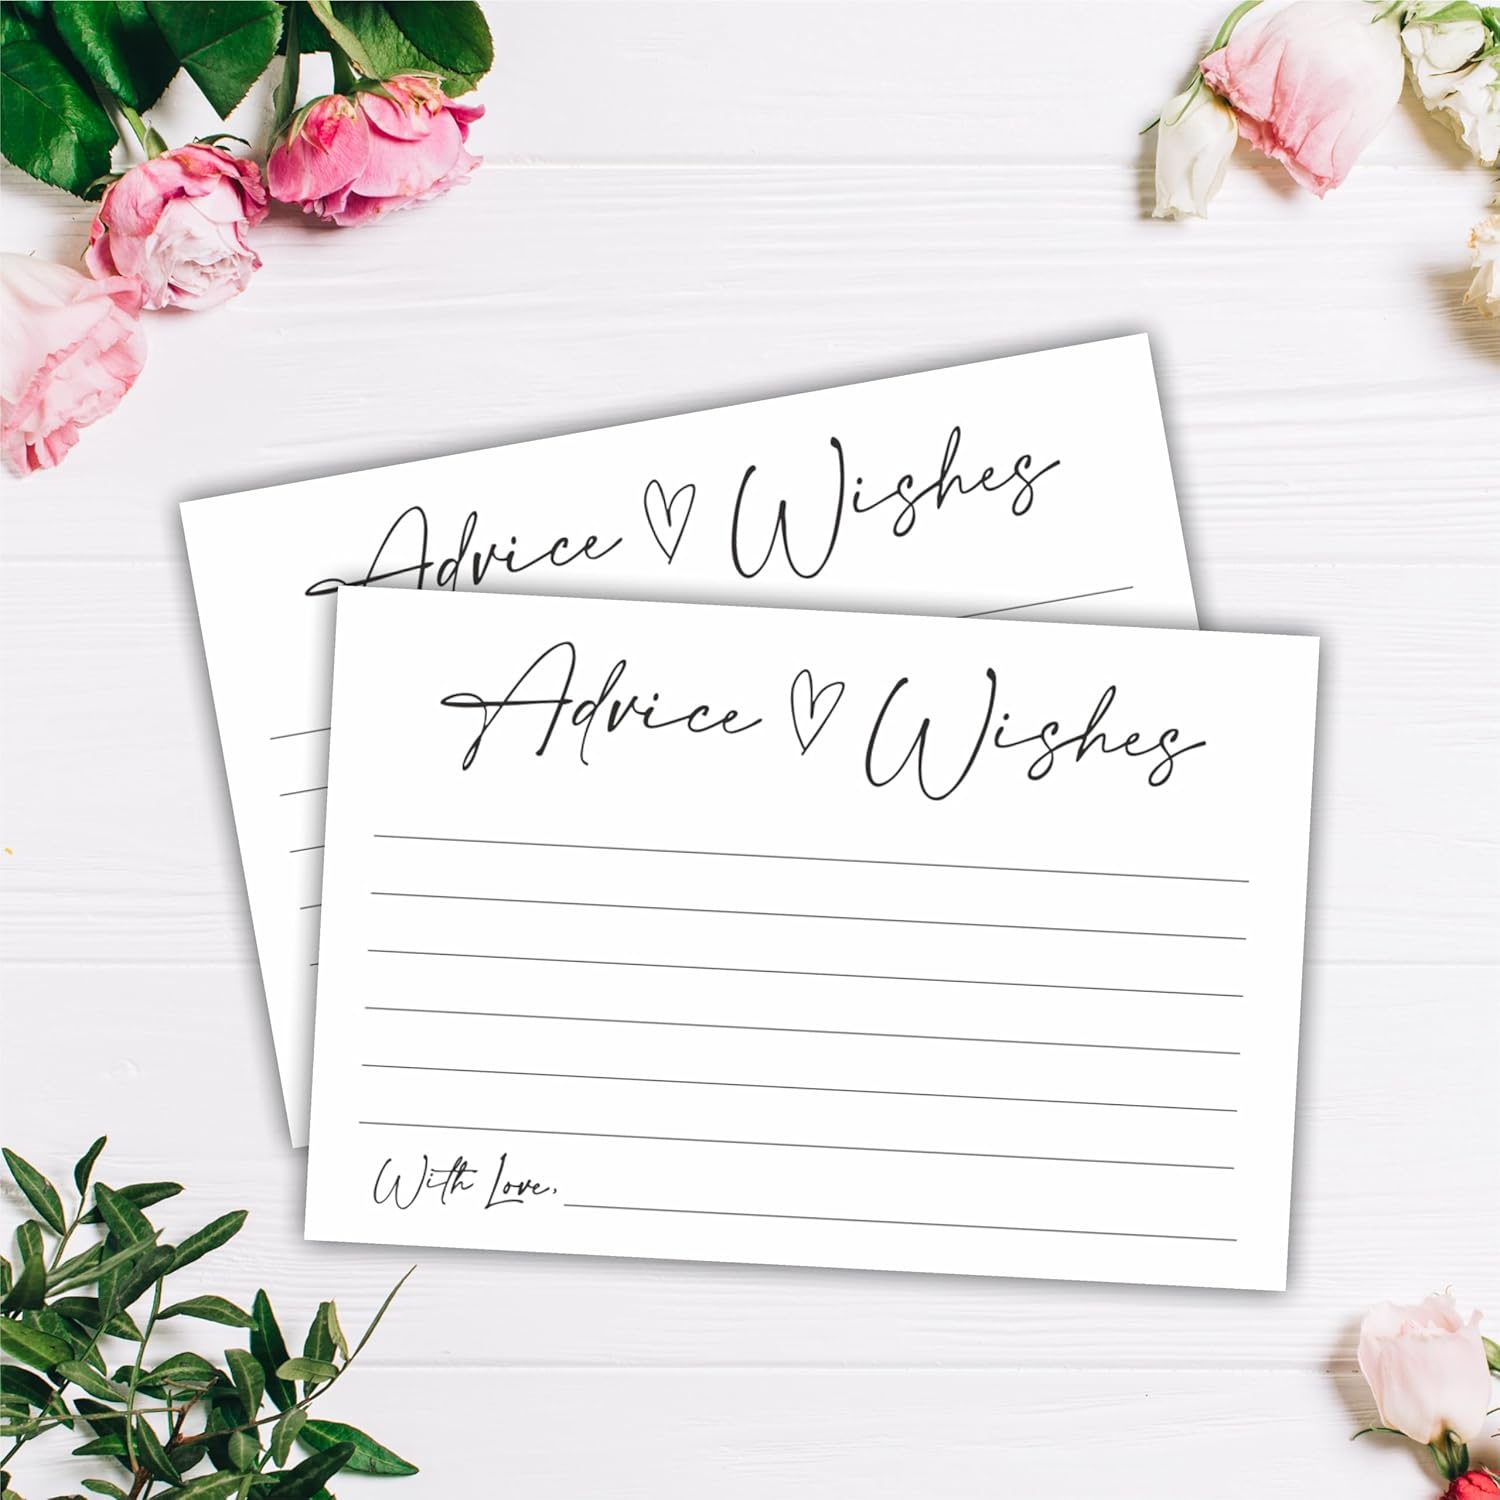 Advice ♡ Wishes
Advice ♡ Wishes
With Love,